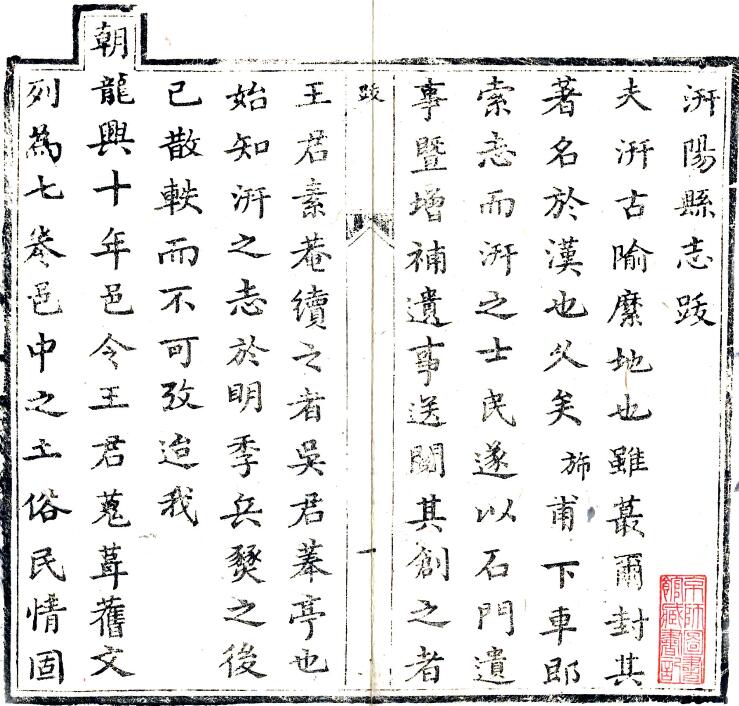 汧陽縣志跋
夫汧古隃麋地也雖蕞爾封其
著名於漢也久矣 斾甫下車郎
索志而汧之士民遂以石門遺
事暨增補遺事送閱其創之者
跋
一
王君素菴續之者吳君菶亭也
始知汧之志於明季兵燹之後
已散軼而不可攷迨我
朝龍興十年邑令王君蒐葺舊文
列為七卷邑中之土俗民情固
京師圖書館藏書記